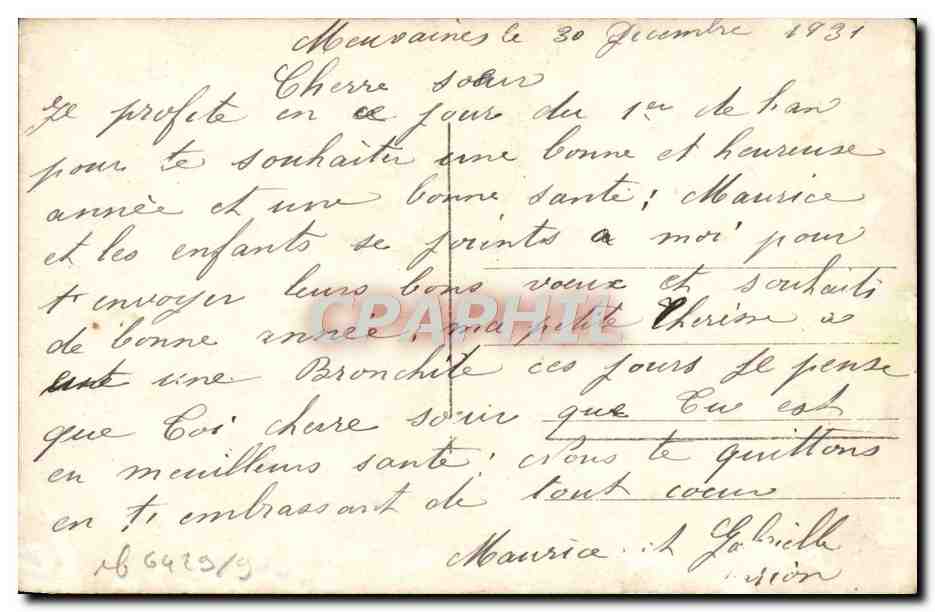 Meuvaines le 30 Decembre 1931
Cherre sœur
Je profite en ce jour du 1er de l'an
pour te souhaiter une bonne et heureuse
année et une bonne santé; Maurice
et les enfants se joints a moi pour
t'envoyer leurs bons vœux et souhaits
de bonne année, ma petite a
eut une Bronchite ces jours Je pense
que Toi cherre sœur que Tu est
en meuilleurs santé; Nous te quittons
en t'embrassant de tout coeur
Maurice et Gabrielle
N6429/9
CPAPHIL